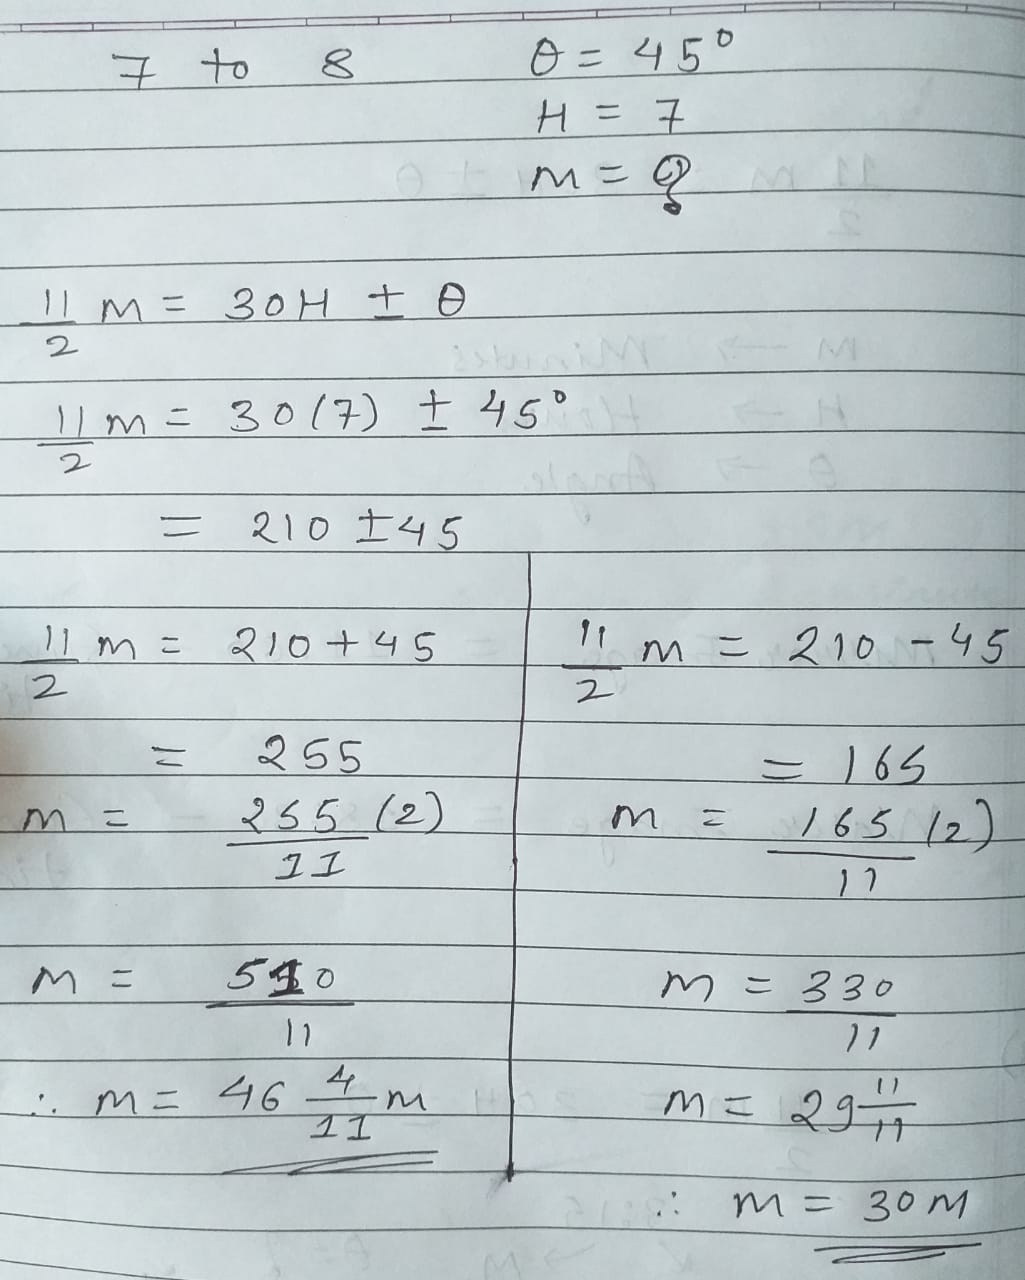 7 to 8 θ = 45°
H = 7
m = ?
11/2 m = 30H ± θ
11/2 m = 30(7) ± 45°
= 210 ± 45
11/2 m = 210 + 45
= 255
m = 255 (2)/11
m = 510/11
∴ m = 46 4/11 m
11/2 m = 210 - 45
= 165
m = 165 (2)/11
m = 330/11
m = 29 11/11
∴ m = 30 M